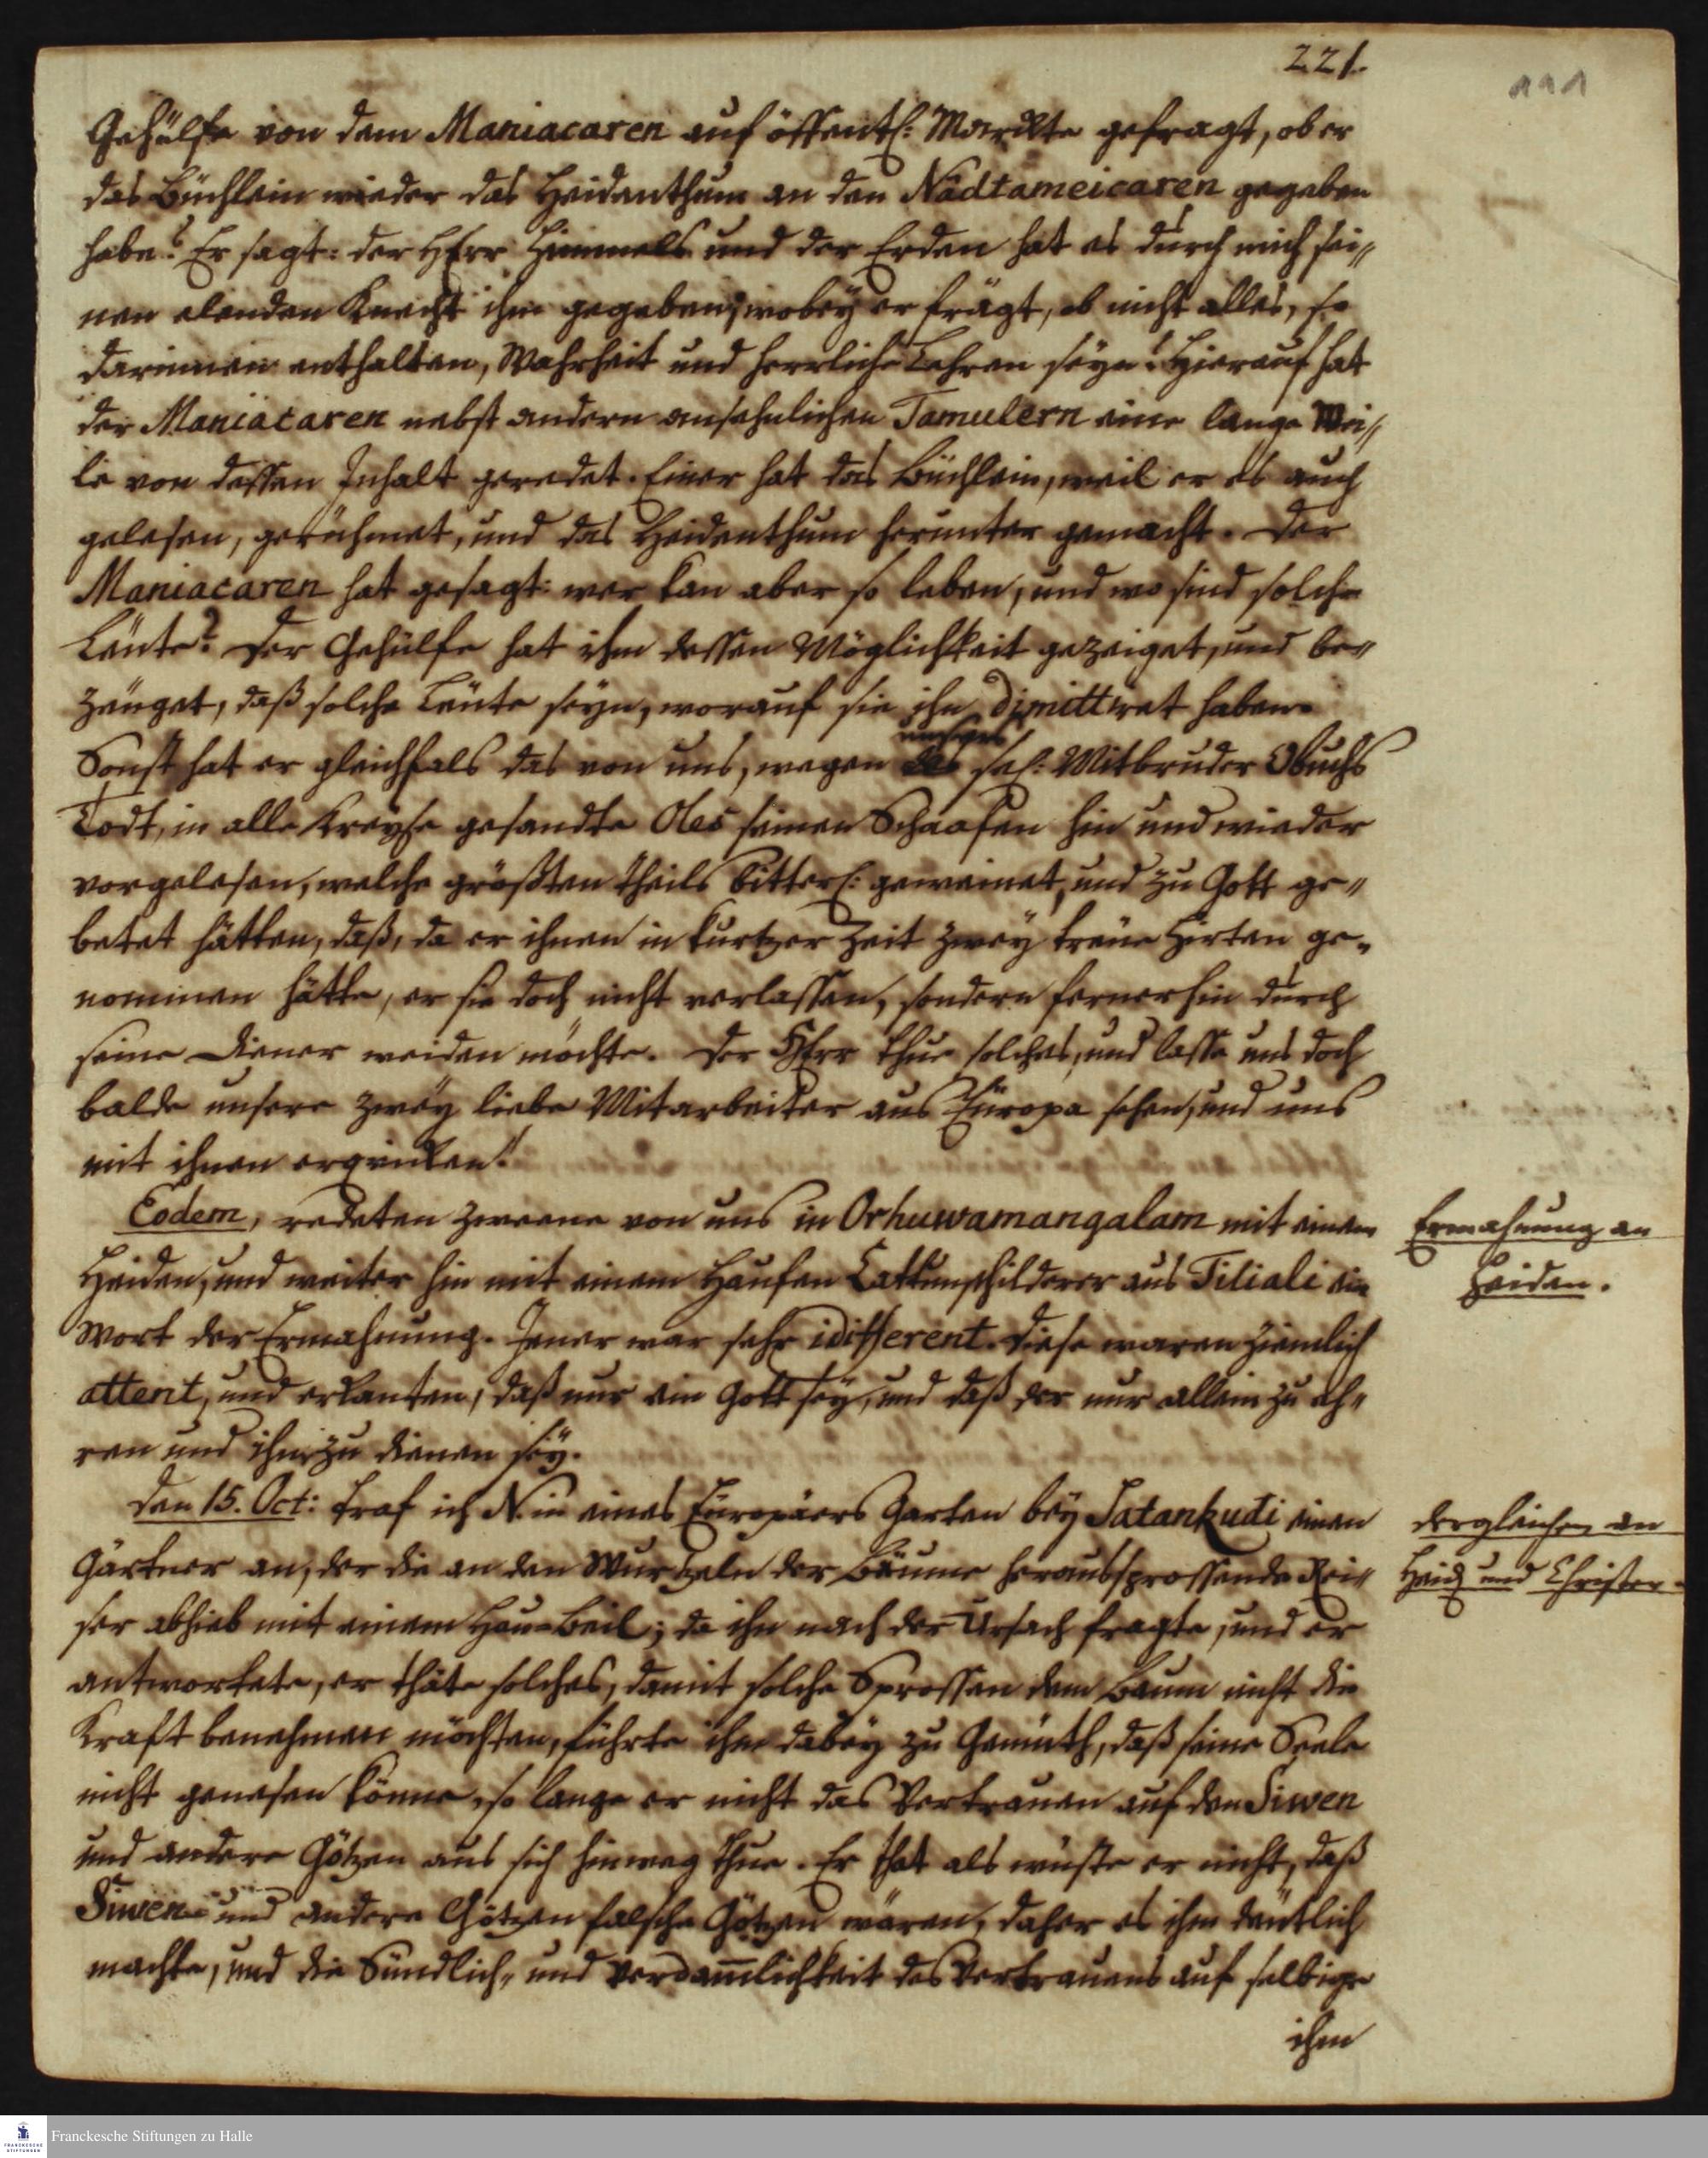 221.
111
Gehülfe von dem Maniacaren auf öffentl: Marckte gefragt, ob er
das Büchlein wieder das Heidenthum an den Nādtameicaren gegeben
habe? Er sagt: der HErr Himmels und der Erden hat es durch mich sei//
nen elenden Knecht ihm gegeben, wobeÿ er frägt, ob nicht alles, so
darinnen enthalten, Wahrheit und herrliche Lehren seÿn? Hierauf hat
der Maniacaren nebst andern ansehnlichen Tamulern eine lange Wei//
le von dessen Inhalt geredet. Einer hat das Büchlein, weil er es auch
gelesen, gerühmet, und das Heidenthum herunter gemacht. Der
Maniacaren hat gesagt: wer kan aber so leben, und wo sind solche
Leute? Der Gehülfe hat ihm dessen Möglichkeit gezeiget, und be//
zeuget, daß solche Leute seyn, worauf sie ihn dimittiret haben.
unsers
Sonst hat er gleichfals das von uns, wegen des sel: Mitbruder Obuchs
Todt, in alle Kreyse gesandte Oles seinen Schaafen hin und wieder
vorgelesen, welche größten theils bitterl: geweinet, und zu Gott ge//
betet hätten, daß, da er ihnen in kurtzer Zeit zweÿ treue Hirten ge//
nommen hätte, er sie doch nicht verlassen, sondern fernerhin durch
seine Diener weiden möchte. Der HErr thue solches, und lasse uns doch
balde unsere zweÿ liebe Mitarbeiter aus Europa sehen, und uns
mit ihnen erqvicken!
Eodem, redeten zweene von uns in Orhuwamangalam mit einem
Heiden, und weiter hin mit einem Haufen Cattunschilderer aus Tiliali ein
Wort der Ermahnung. Jener war sehr idifferent. Diese waren ziemlich
attent, und erkanten, daß nur ein Gott seÿ, und daß der nur allein zu eh//
ren und ihm zu dienen seÿ.
Ermahnung an
Heiden.
Den 15. Oct: traf ich N. in eines Europäers Garten beÿ Satankudi einen
Gärtner an, der die an den Wurtzeln der Bäume heraussprossende Rei//
ser abhieb mit einem Hau-Beil; da ihn nach der Ursach fragte, und er
antwortete, er thäte solches, damit solche Sprossen dem Baum nicht die
Kraft benehmen möchten, führte ihm dabeÿ zu Gemüth, daß seine Seele
nicht genesen könne, so lange er nicht das Vertrauen auf den Siwen
und andere Götzen aus sich hinweg thue. Er that als wüste er nicht, daß
Siwen und andere Götzen falsche Götzen wären, daher es ihm deutlich
machte, und die Sündlich- und Verdam̅lichkeit des Vertrauens auf selbige
ihm
dergleichen an
Heid und Christen.
Franckesche Stiftungen zu Halle